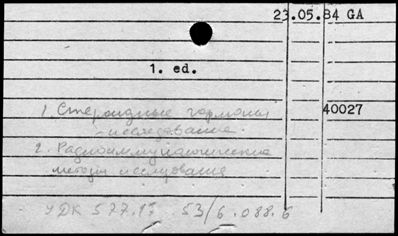 23.05.84 GA
1. ed.
1. Стероидные гормоны
40027
- исследование.
2. Радиоиммунологические
методы исследования
УДК 577.17 53/6.088.6